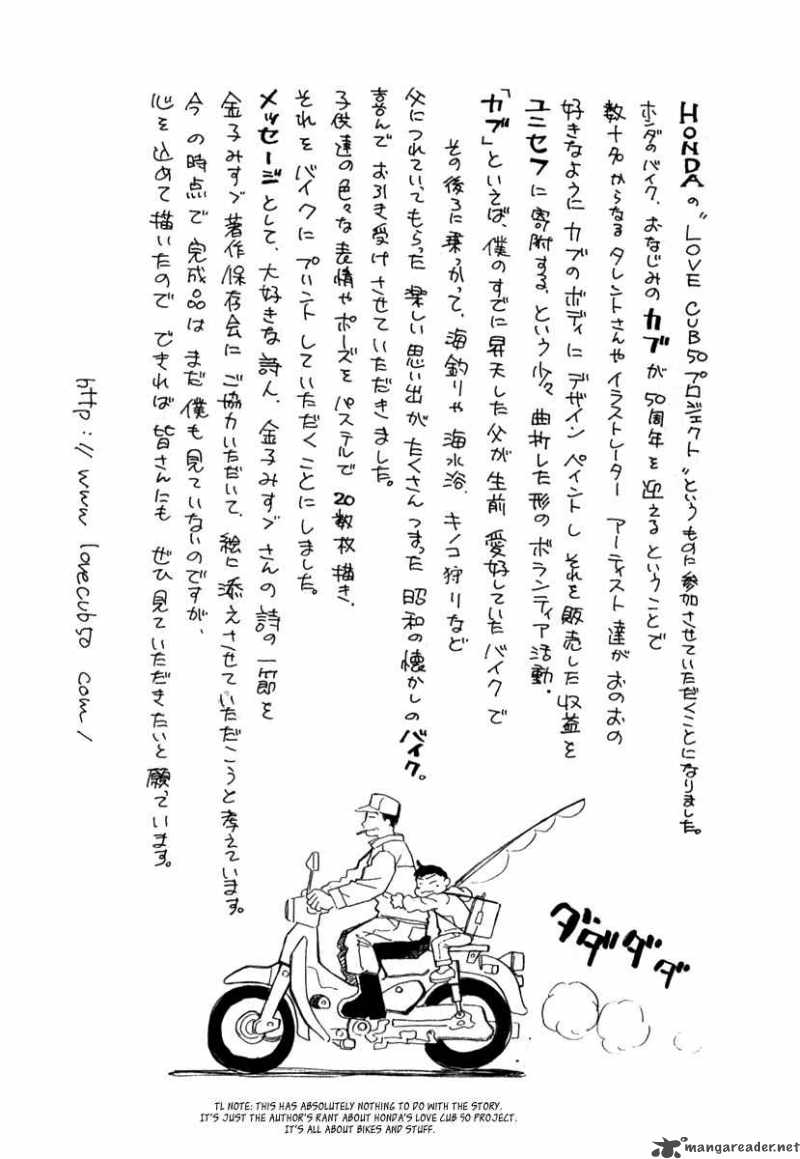 HONDAの"LOVE CUB50プロジェクト"というものに参加させていただくことになりました。
ホンダのバイク、おなじみのカブが50周年を迎えるということで
数十名からなるタレントさんやイラストレーター アーティスト達がおのおの
好きなようにカブのボディにデザインペイントし それを販売した収益を
ユニセフに寄附する、という少々曲折した形のボランティア活動.
「カブ」といえば、僕のすでに昇天した父が生前愛好していたバイクで
その後ろに乗っかって、海釣りや海水浴、キノコ狩りなど
父につれていってもらった楽しい思い出がたくさんつまった昭和の懐かしのバイク。
喜んでお引き受けさせていただきました。
子供達の色々な表情やポーズをパステルで20数枚描き、
それをバイクにプリントしていただくことにしました。
メッセージとして、大好きな詩人、金子みすゞさんの詩の一節を
金子みすゞ著作保存会にご協力いただいて、絵に添えさせていただこうと考えています。
今の時点で完成品はまだ僕も見ていないのですが、
心を込めて描いたので できれば皆さんにも ぜひ見ていただきたいと願っています。
http://www lovecub50 com/
ダダダダ
TL NOTE: THIS HAS ABSOLUTELY NOTHING TO DO WITH THE STORY.
IT'S JUST THE AUTHOR'S RANT ABOUT HONDA'S LOVE CUB 50 PROJECT.
IT'S ALL ABOUT BIKES AND STUFF.
mangareader.net